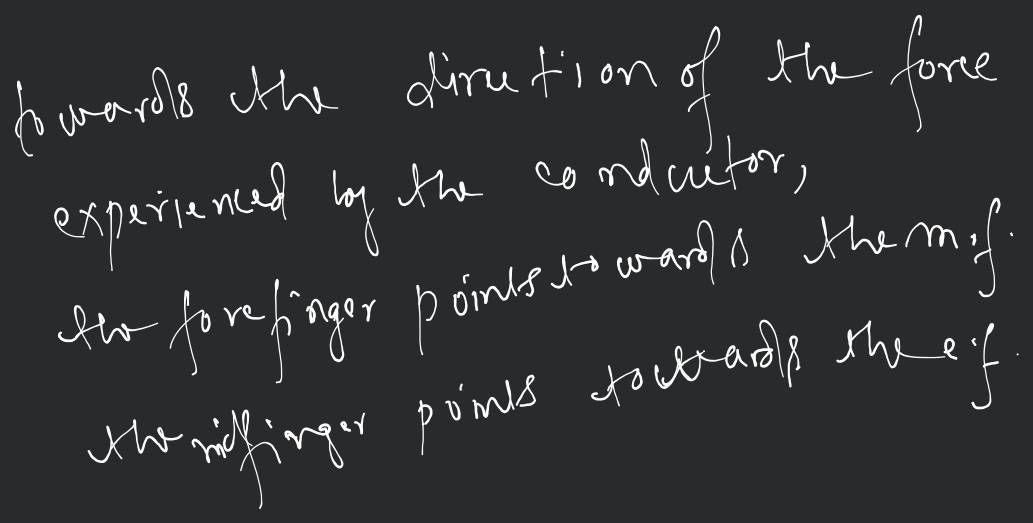 towards the direction of the force
experienced by the conductor,
the forefinger points towards the m.f.
the midfinger points towards the e.f.